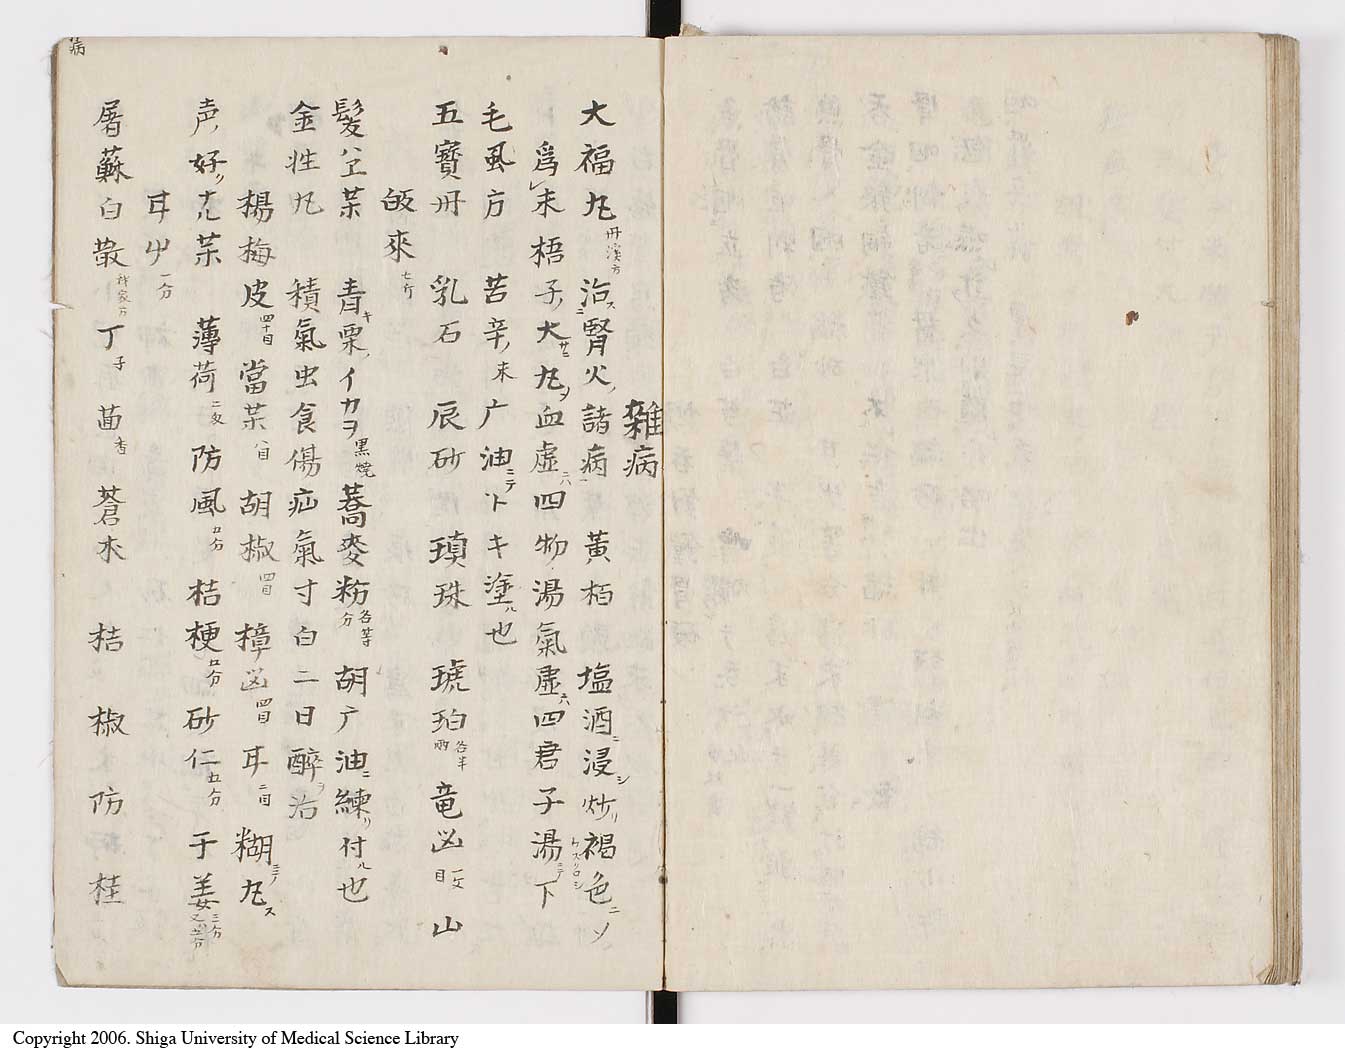 病
雑病
大福丸 丹溪方 治ス腎火ノ諸病ニ 黄栢 塩酒ニ浸シ炒リ褐色ニソ
爲レ末梧子ノ大ニ丸ヲ血虚ニハ四物湯氣虚ハ四君子湯ニテ下
毛風方 苦辛ノ末广油ニテトキ塗ル也
五寳丹 乳石 辰砂 瑱珠 琥珀 各半兩 竜凶 一文目 山
皈來 七斤
髪ハヱ茉 青キ栗ノイカヲ黒焼 蕎麥粉 各等分 胡广油ニ練リ付ル也
金性丸 積氣虫食傷疝氣寸白二日醉ヲ治
楊梅皮 四十目 當茉 八目 胡椒 四目 樟凶 四目 耳 二目 糊ニテ丸ス
声ノ好リ尤茉 薄荷 二文 防風 五分 桔梗 五分 砂仁 五分 于姜 三分
耳屮 一分
屠蘇白散 我家方 丁子 茴香 蒼朮 桔 椒 防 桂
Copyright 2006. Shiga University of Medical Science Library